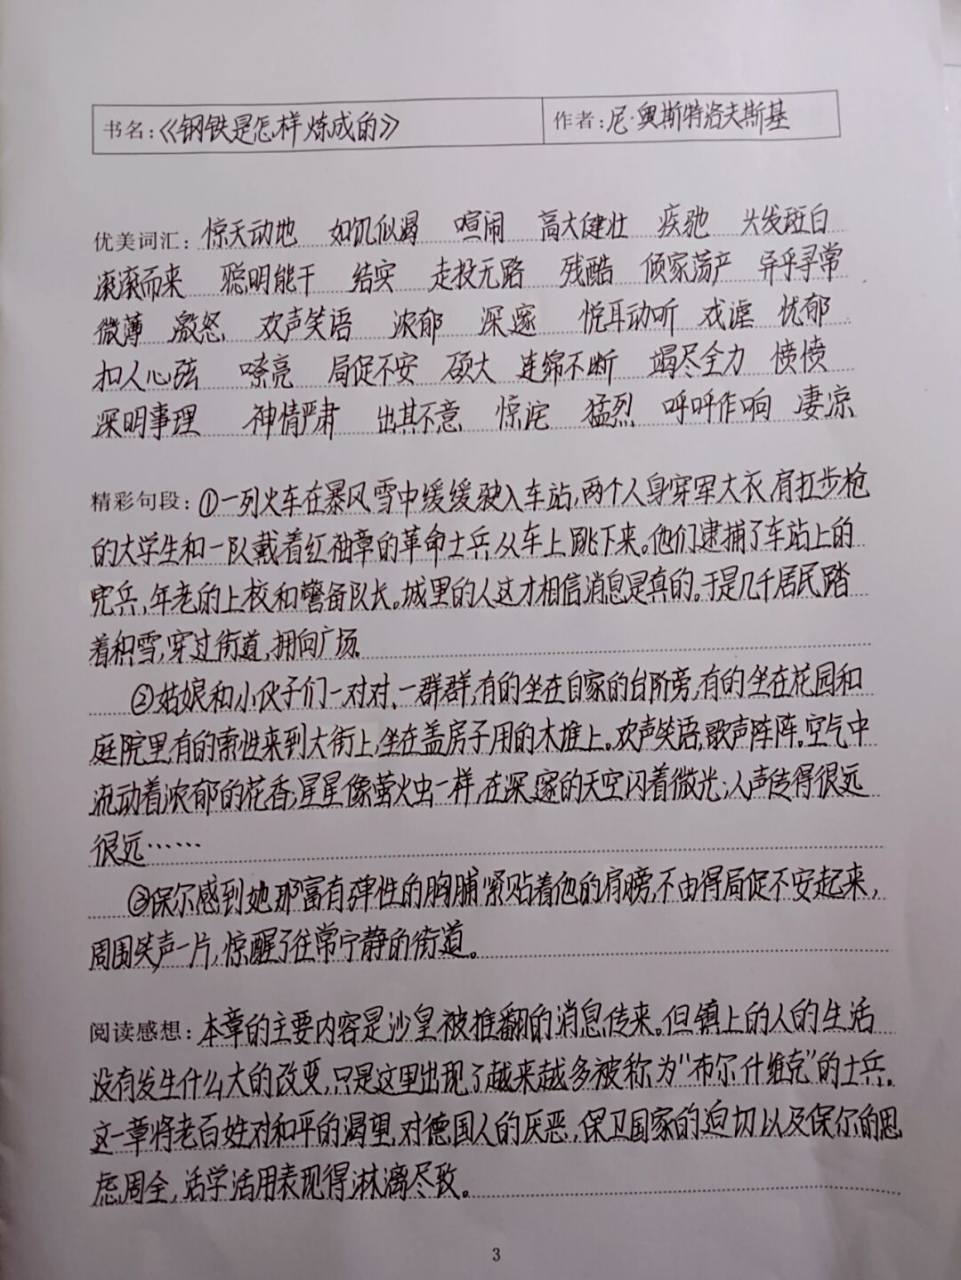 书名:《钢铁是怎样炼成的》 作者:尼·奥斯特洛夫斯基
优美词汇: 惊天动地 如饥似渴 喧闹 高大健壮 疾驰 头发斑白
滚滚而来 聪明能干 结实 走投无路 残酷 倾家荡产 异乎寻常
微薄 激怒 欢声笑语 浓郁 深邃 悦耳动听 戏谑 忧郁
扣人心弦 嘹亮 局促不安 硕大 连绵不断 竭尽全力 愤愤
深明事理 神情严肃 出其不意 惊诧 猛烈 呼呼作响 凄凉
精彩句段: ①一列火车在暴风雪中缓缓驶入车站,两个人身穿军大衣,肩扛步枪
的大学生和一队戴着红袖章的革命士兵从车上跳下来。他们逮捕了车站上的
宪兵,年老的上校和警备队长。城里的人这才相信消息是真的。于是几千居民踏
着积雪,穿过街道,拥向广场.
②姑娘和小伙子们一对对、一群群,有的坐在自家的台阶旁,有的坐在花园和
庭院里,有的索性来到大街上,坐在盖房子用的木堆上。欢声笑语,歌声阵阵。空气中
流动着浓郁的花香;星星像萤火虫一样,在深邃的天空闪着微光;人声传得很远
很远……
③保尔感到她那富有弹性的胸脯紧贴着他的肩膀,不由得局促不安起来,
周围笑声一片,惊醒了往常宁静的街道。
阅读感想: 本章的主要内容是沙皇被推翻的消息传来。但镇上的人的生活
没有发生什么大的改变,只是这里出现了越来越多被称为“布尔什维克”的士兵。
这一章将老百姓对和平的渴望,对德国人的厌恶,保卫国家的迫切以及保尔的思
虑周全,活学活用表现得淋漓尽致。
3